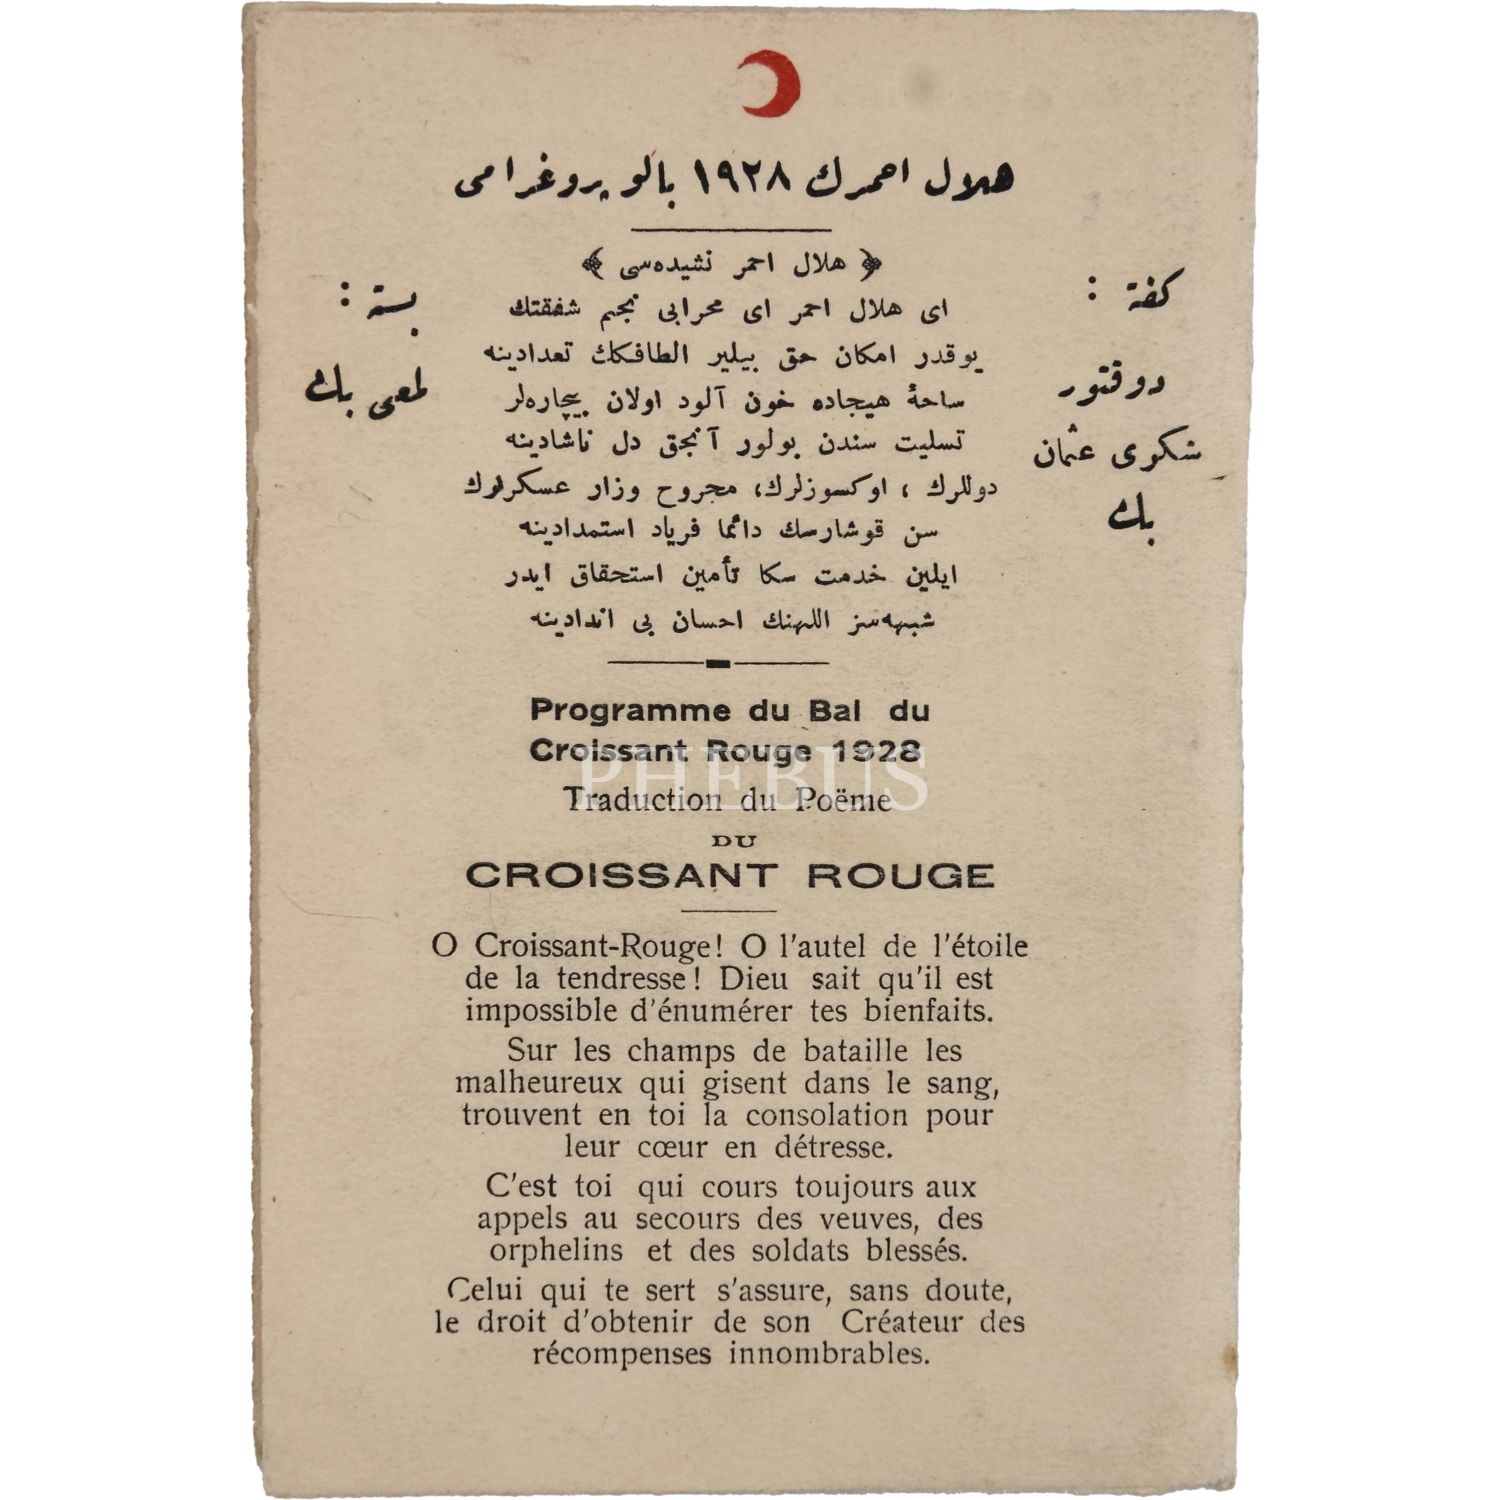 هلال احمرك ١٩٢٨ بالو پروغرامی
﴿ هلال احمر نشیده‌سی ﴾
كفته :
دوقتور
شكری عثمان
بك
بسته :
لمعی بك
ای هلال احمر ای محرابی نجم شفقتك
یوقدر امكان حق بیلیر الطافكك تعدادینه
ساحهٔ هیجاده خون آلود اولان بیچاره‌لر
تسلیت سندن بولور آنجق دل ناشادینه
دوللرك ، اوكسوزلرك، مجروح وزار عسكرلرك
سن قوشارسك دائما فریاد استمدادینه
ایلین خدمت سكا تأمین استحقاق ایدر
شبهه‌سز اللهنك احسان بی اندادینه
Programme du Bal du
Croissant Rouge 1928
PHEBUS
Traduction du Poëme
DU
CROISSANT ROUGE
O Croissant-Rouge! O l'autel de l'étoile
de la tendresse! Dieu sait qu'il est
impossible d'énumérer tes bienfaits.
Sur les champs de bataille les
malheureux qui gisent dans le sang,
trouvent en toi la consolation pour
leur cœur en détresse.
C'est toi qui cours toujours aux
appels au secours des veuves, des
orphelins et des soldats blessés.
Celui qui te sert s'assure, sans doute,
le droit d'obtenir de son Créateur des
récompenses innombrables.